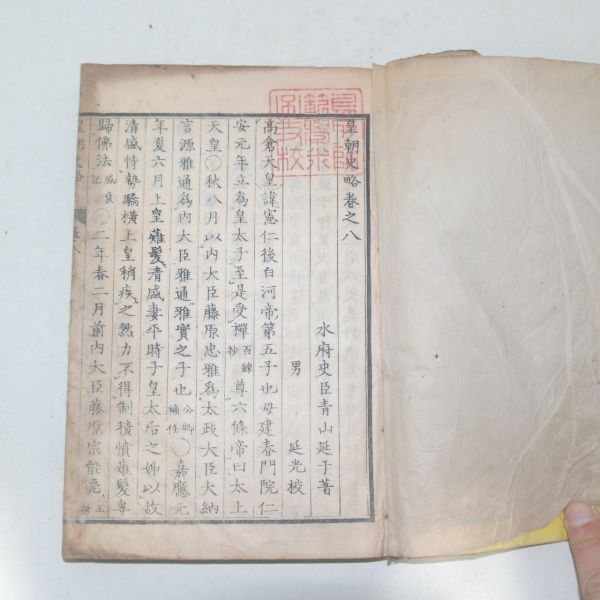 皇朝史略卷之八
水府史臣青山延于著
男 延光校
高倉天皇諱憲仁後白河帝第五子也母建春門院仁
安元年立爲皇太子至是受禪百錬抄尊六條帝曰太上
天皇○秋八月以内大臣藤原忠雅爲太政大臣大納
言源雅通爲内大臣雅通雅實之子也公卿補任○嘉應元
年夏六月上皇薙髮清盛妻平時子皇太后之姊以故
清盛恃勢驕橫上皇稍疾之然力不得制積憤薙髮專
歸佛法盛衰記○二年春二月前内大臣藤原宗能薨
皇朝史略